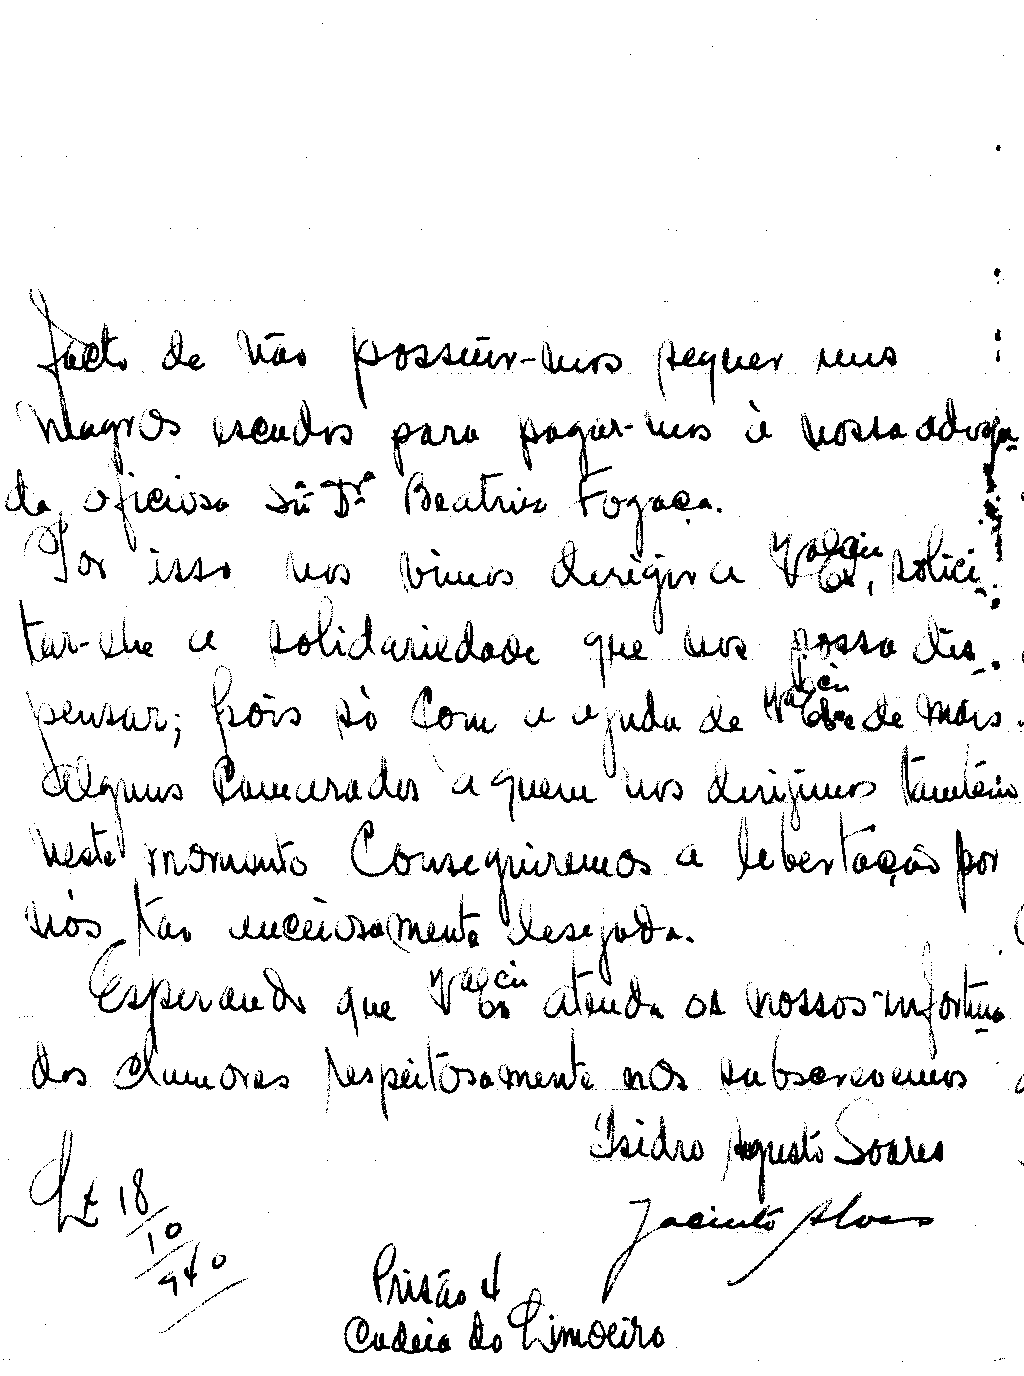 facto de não possuír-mos sequer uns
magros escudos para pagar-mos á nossa advoga
da oficiosa Srª Drª Beatriz Fogaça.
Por isso nos vimos dirigir a Vª Excia, solici
tar-lhe a solidariedade que nos possa dis
pensar; pois só com a ajuda de Vª Excia e de mais
alguns Camaradas a quem nos dirigimos também
neste momento Conseguiremos a libertação por
nós tão anciosamente desejada.
Esperando que Vª Excia atenda os nossos infortuna
dos clamores respeitosamente nos subscrevemos
Isidro Agusto Soares
Jacinto Alves
Lx 18/10/940
Prisão 4
Cadeia do Limoeiro